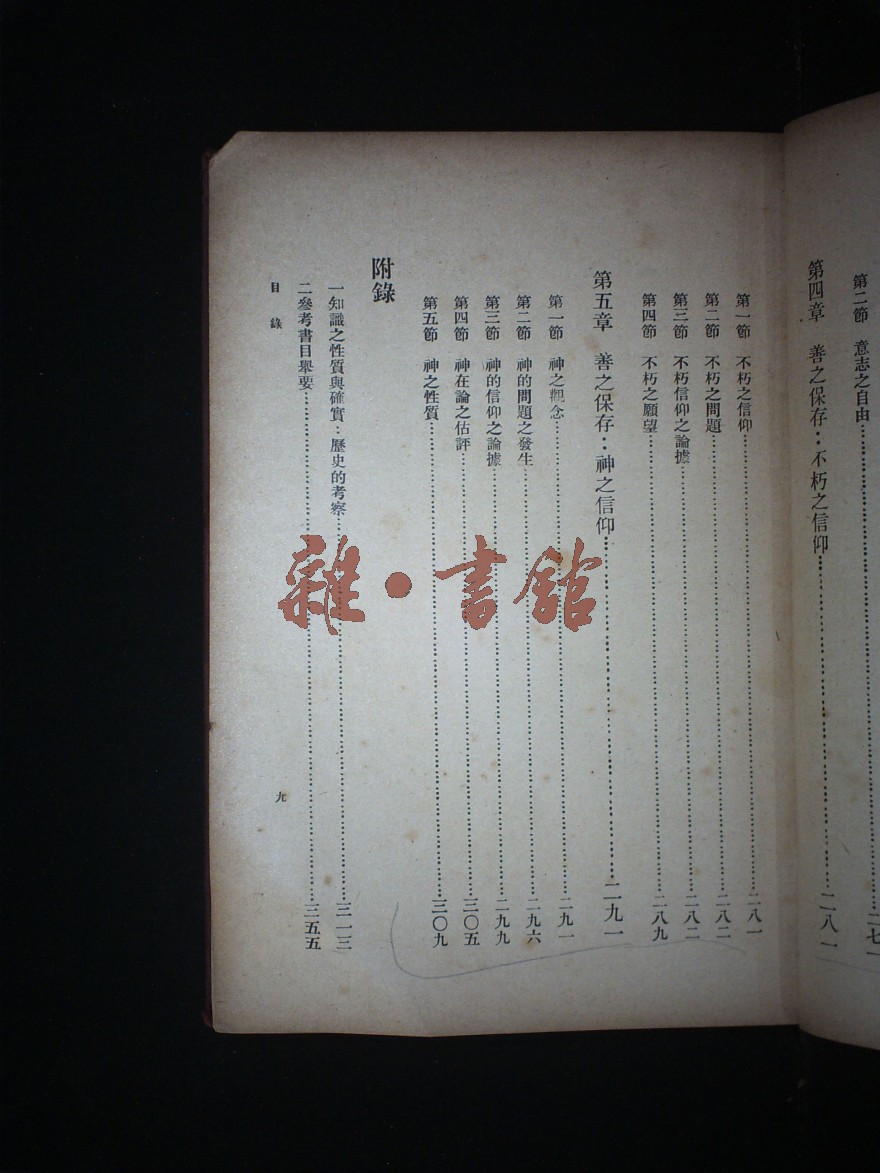 第二節　意志之自由……二七一
第四章　善之保存：不朽之信仰……二八一
第一節　不朽之信仰……二八一
第二節　不朽之問題……二八二
第三節　不朽信仰之論據……二八二
第四節　不朽之願望……二八九
第五章　善之保存：神之信仰……二九一
第一節　神之觀念……二九一
第二節　神的問題之發生……二九六
第三節　神的信仰之論據……二九九
第四節　神在論之估評……三〇五
第五節　神之性質……三〇九
附錄
一知識之性質與確實：歷史的考察……三一三
二參考書目舉要……三五五
目錄　九
雜·書館